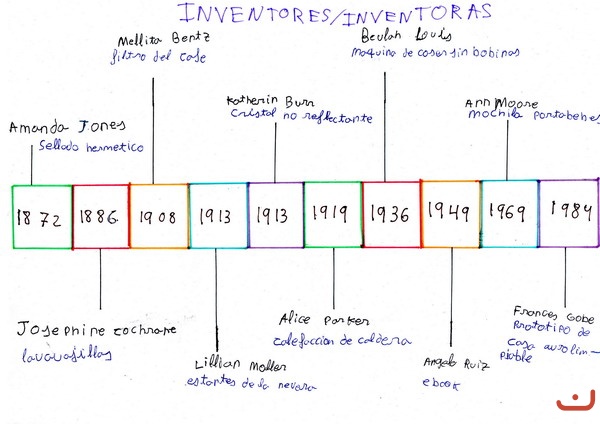 INVENTORES/INVENTORAS
Mellita Bentz
filtro del cafe
Beulah Louis
maquina de coser sin bobinas
Katherin Burr
Cristal no reflectante
Ann Moore
mochila portabebes
Amanda Jones
Sellado hermetico
1872
1886
1908
1913
1913
1919
1936
1949
1969
1984
Josephine cochrane
lavavajillas
Lillian Moller
estantes de la nevera
Alice Parker
calefaccion de caldera
Angela Ruiz
ebook
Frances Gobe
Prototipo de
casa autolim-
piable